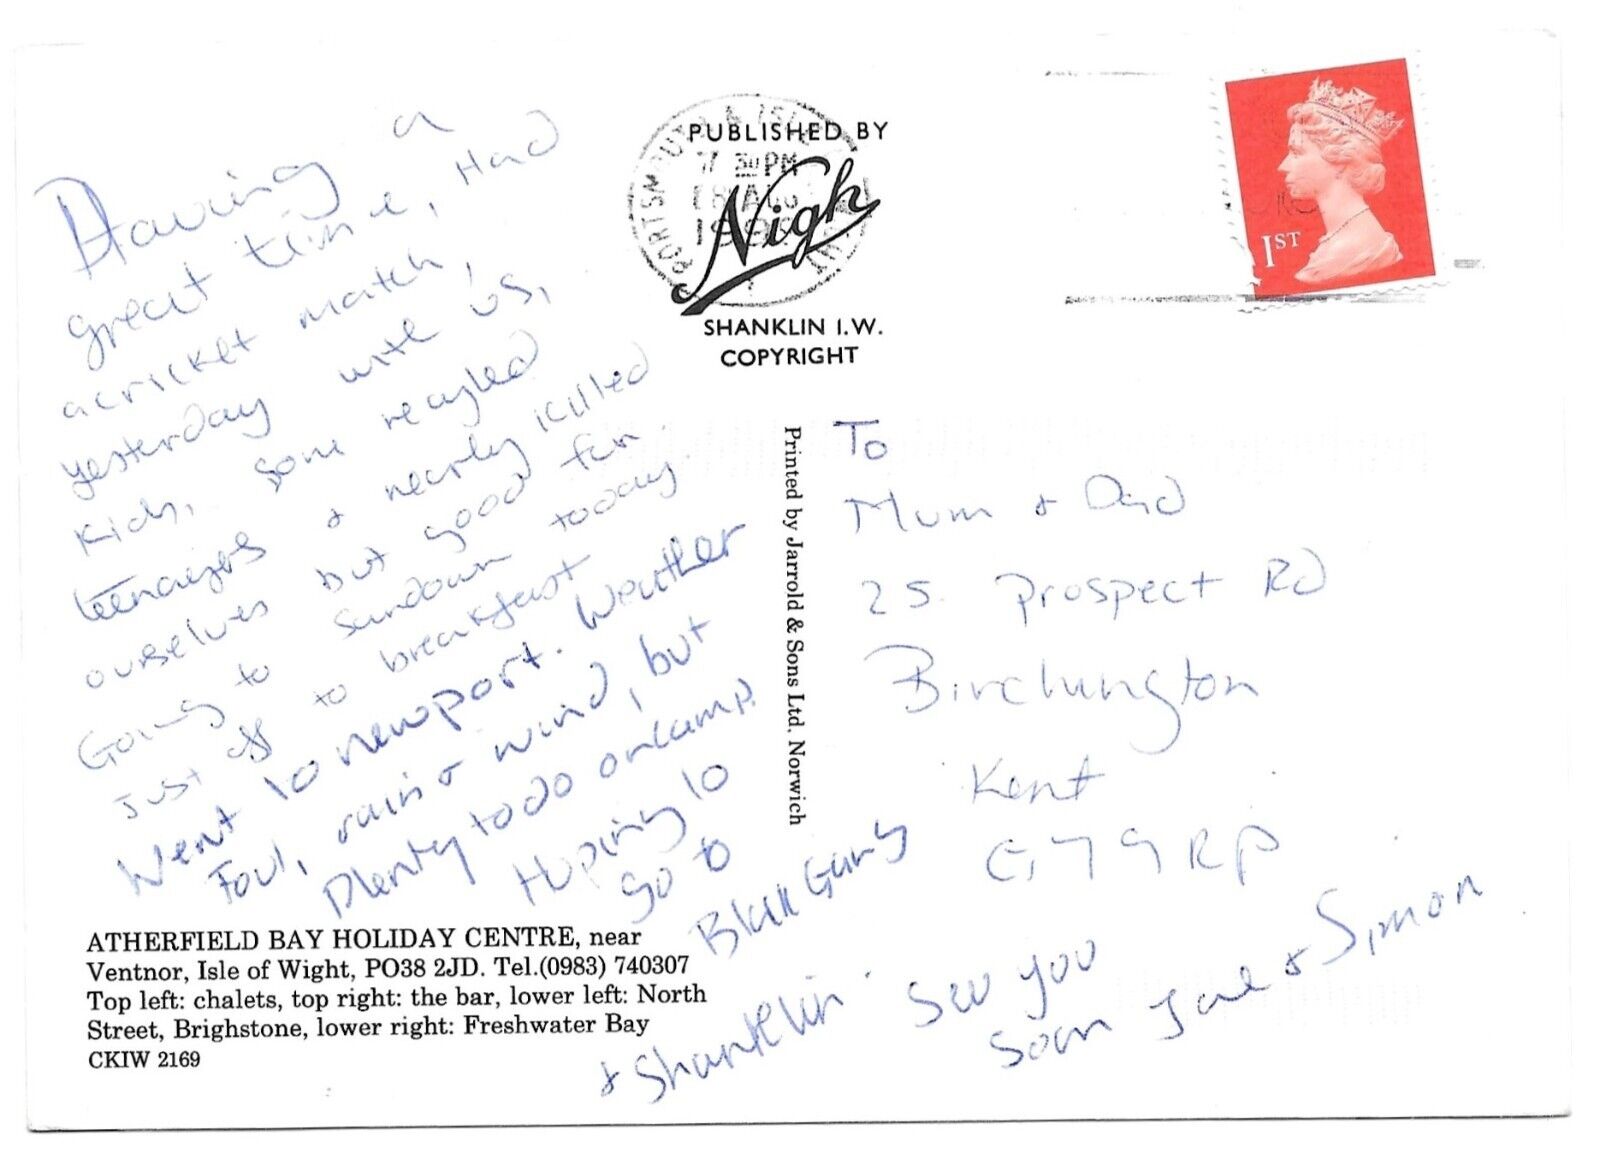 Having a
great time, Had
a cricket match,
yesterday with us,
Kids, some recyled
teenagers & nearly killed
ourselves but good fun.
Going to Sundown today
Just off to breakfast
Went to newport. Weather
Foul, rain & wind, but
Plenty to do on camp.
Hoping to
go to
Blak Gang
& Shanklin. See you
soon Jane & Simon
ATHERFIELD BAY HOLIDAY CENTRE, near
Ventnor, Isle of Wight, PO38 2JD. Tel.(0983) 740307
Top left: chalets, top right: the bar, lower left: North
Street, Brighstone, lower right: Freshwater Bay
CKIW 2169
PUBLISHED BY
Nigh
SHANKLIN I.W.
COPYRIGHT
PORTSMOUTH & ISLE
7 30 PM
18 AUG
Printed by Jarrold & Sons Ltd. Norwich
1ST
To
Mum & Dad
25 Prospect Rd
Birchington
Kent
CT7 9RP